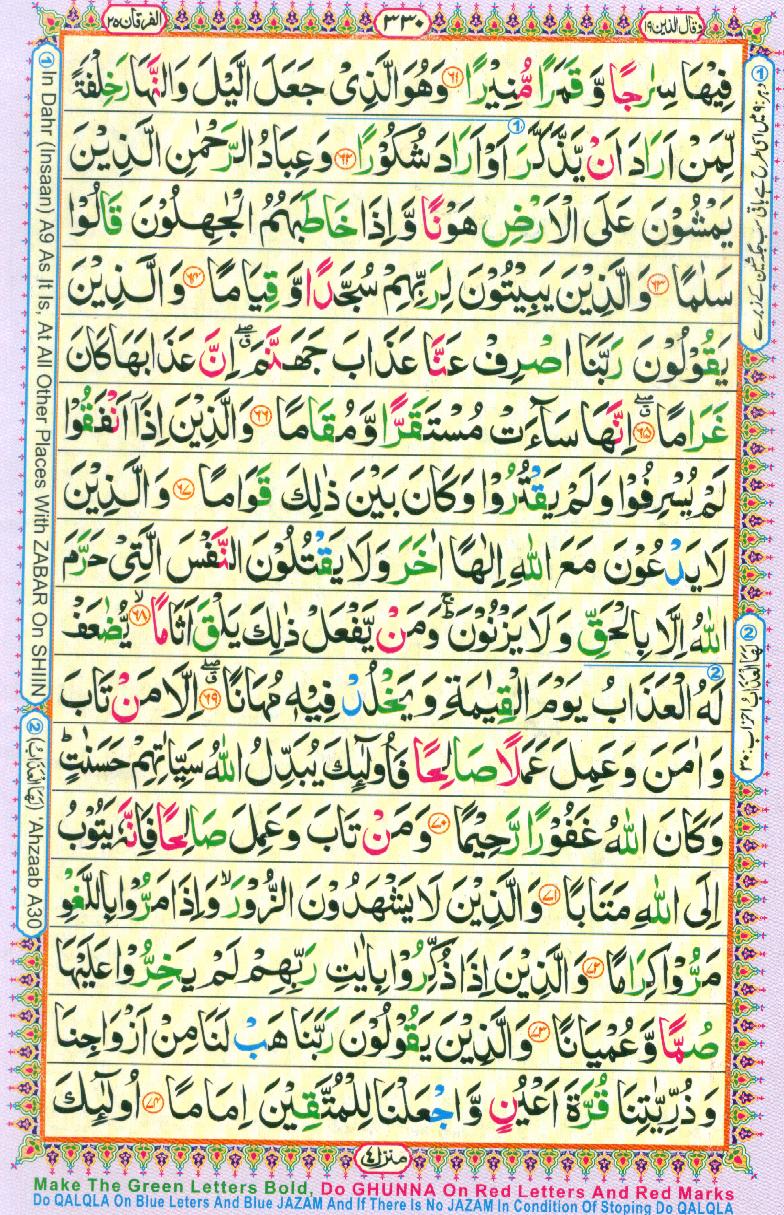 وقال الذین ۱۹
۳۳۰
الفرقان ۲۵
فِیْهَا سِرٰجًا وَّ قَمَرًا مُّنِیْرًا ۝۶۱ وَهُوَ الَّذِیْ جَعَلَ الَّیْلَ وَالنَّهَارَ خِلْفَةً
لِّمَنْ اَرَادَ اَنْ یَّذَّكَّرَ اَوْ اَرَادَ شُكُوْرًا ۝۶۲ وَعِبَادُ الرَّحْمٰنِ الَّذِیْنَ
یَمْشُوْنَ عَلَی الْاَرْضِ هَوْنًا وَّ اِذَا خَاطَبَهُمُ الْجٰهِلُوْنَ قَالُوْا
سَلٰمًا ۝۶۳ وَالَّذِیْنَ یَبِیْتُوْنَ لِرَبِّهِمْ سُجَّدًا وَّ قِیَامًا ۝۶۴ وَالَّذِیْنَ
یَقُوْلُوْنَ رَبَّنَا اصْرِفْ عَنَّا عَذَابَ جَهَنَّمَ ۖق اِنَّ عَذَابَهَا كَانَ
غَرَامًا ۝۶۵ۖق اِنَّهَا سَآءَتْ مُسْتَقَرًّا وَّ مُقَامًا ۝۶۶ وَالَّذِیْنَ اِذَاۤ اَنْفَقُوْا
لَمْ یُسْرِفُوْا وَلَمْ یَقْتُرُوْا وَكَانَ بَیْنَ ذٰلِكَ قَوَامًا ۝۶۷ وَالَّذِیْنَ
لَا یَدْعُوْنَ مَعَ اللّٰهِ اِلٰهًا اٰخَرَ وَلَا یَقْتُلُوْنَ النَّفْسَ الَّتِیْ حَرَّمَ
اللّٰهُ اِلَّا بِالْحَقِّ وَلَا یَزْنُوْنَ ۚ وَمَنْ یَّفْعَلْ ذٰلِكَ یَلْقَ اَثَامًا ۝۶۸ۙ یُّضٰعَفْ
لَهُ الْعَذَابُ یَوْمَ الْقِیٰمَةِ وَ یَخْلُدْ فِیْهٖ مُهَانًا ۝۶۹ۖق اِلَّا مَنْ تَابَ
وَ اٰمَنَ وَعَمِلَ عَمَلًا صَالِحًا فَاُولٰٓئِكَ یُبَدِّلُ اللّٰهُ سَیِّاٰتِهِمْ حَسَنٰتٍ ؕ
وَكَانَ اللّٰهُ غَفُوْرًا رَّحِیْمًا ۝۷۰ وَمَنْ تَابَ وَعَمِلَ صَالِحًا فَاِنَّهٗ یَتُوْبُ
اِلَی اللّٰهِ مَتَابًا ۝۷۱ وَالَّذِیْنَ لَا یَشْهَدُوْنَ الزُّوْرَ ۙ وَاِذَا مَرُّوْا بِاللَّغْوِ
مَرُّوْا كِرَامًا ۝۷۲ وَالَّذِیْنَ اِذَا ذُكِّرُوْا بِاٰیٰتِ رَبِّهِمْ لَمْ یَخِرُّوْا عَلَیْهَا
صُمًّا وَّ عُمْیَانًا ۝۷۳ وَالَّذِیْنَ یَقُوْلُوْنَ رَبَّنَا هَبْ لَنَا مِنْ اَزْوَاجِنَا
وَ ذُرِّیّٰتِنَا قُرَّةَ اَعْیُنٍ وَّ اجْعَلْنَا لِلْمُتَّقِیْنَ اِمَامًا ۝۷۴ اُولٰٓئِكَ
منزل ٤
① In Dahr (Insaan) A9 As It Is, At All Other Places With ZABAR On SHIIN
② 'Ahzaab A30
Make The Green Letters Bold, Do GHUNNA On Red Letters And Red Marks
Do QALQLA On Blue Leters And Blue JAZAM And If There Is No JAZAM In Condition Of Stoping Do QALQLA